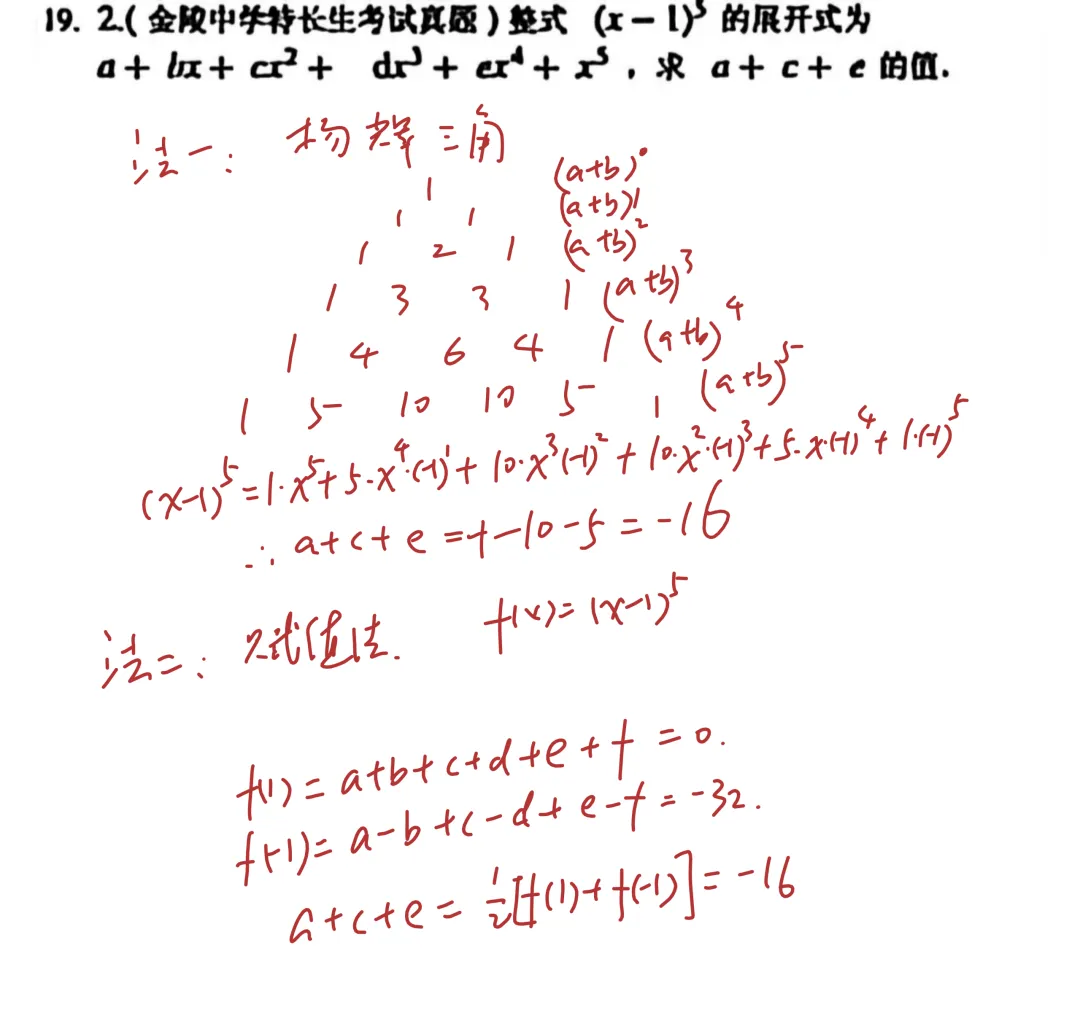 19. 2.(金陵中学特长生考试真题)整式 (x-1)⁵ 的展开式为
a+bx+cx²+ dx³+ex⁴+x⁵,求 a+c+e 的值.
法一: 杨辉三角
1 (a+b)⁰
1 1 (a+b)¹
1 2 1 (a+b)²
1 3 3 1 (a+b)³
1 4 6 4 1 (a+b)⁴
1 5 10 10 5 1 (a+b)⁵
(x-1)⁵=1·x⁵+5·x⁴·(-1)¹+10·x³(-1)²+10·x²·(-1)³+5·x·(-1)⁴+1·(-1)⁵
∴ a+c+e=-1-10-5=-16
法二: 赋值法. f(x)=(x-1)⁵
f(1)=a+b+c+d+e+f=0.
f(-1)=a-b+c-d+e-f=-32.
a+c+e=½[f(1)+f(-1)]=-16